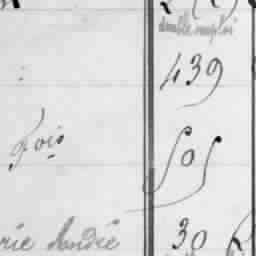 double emploi
439
fois
505
rie Andrée
30